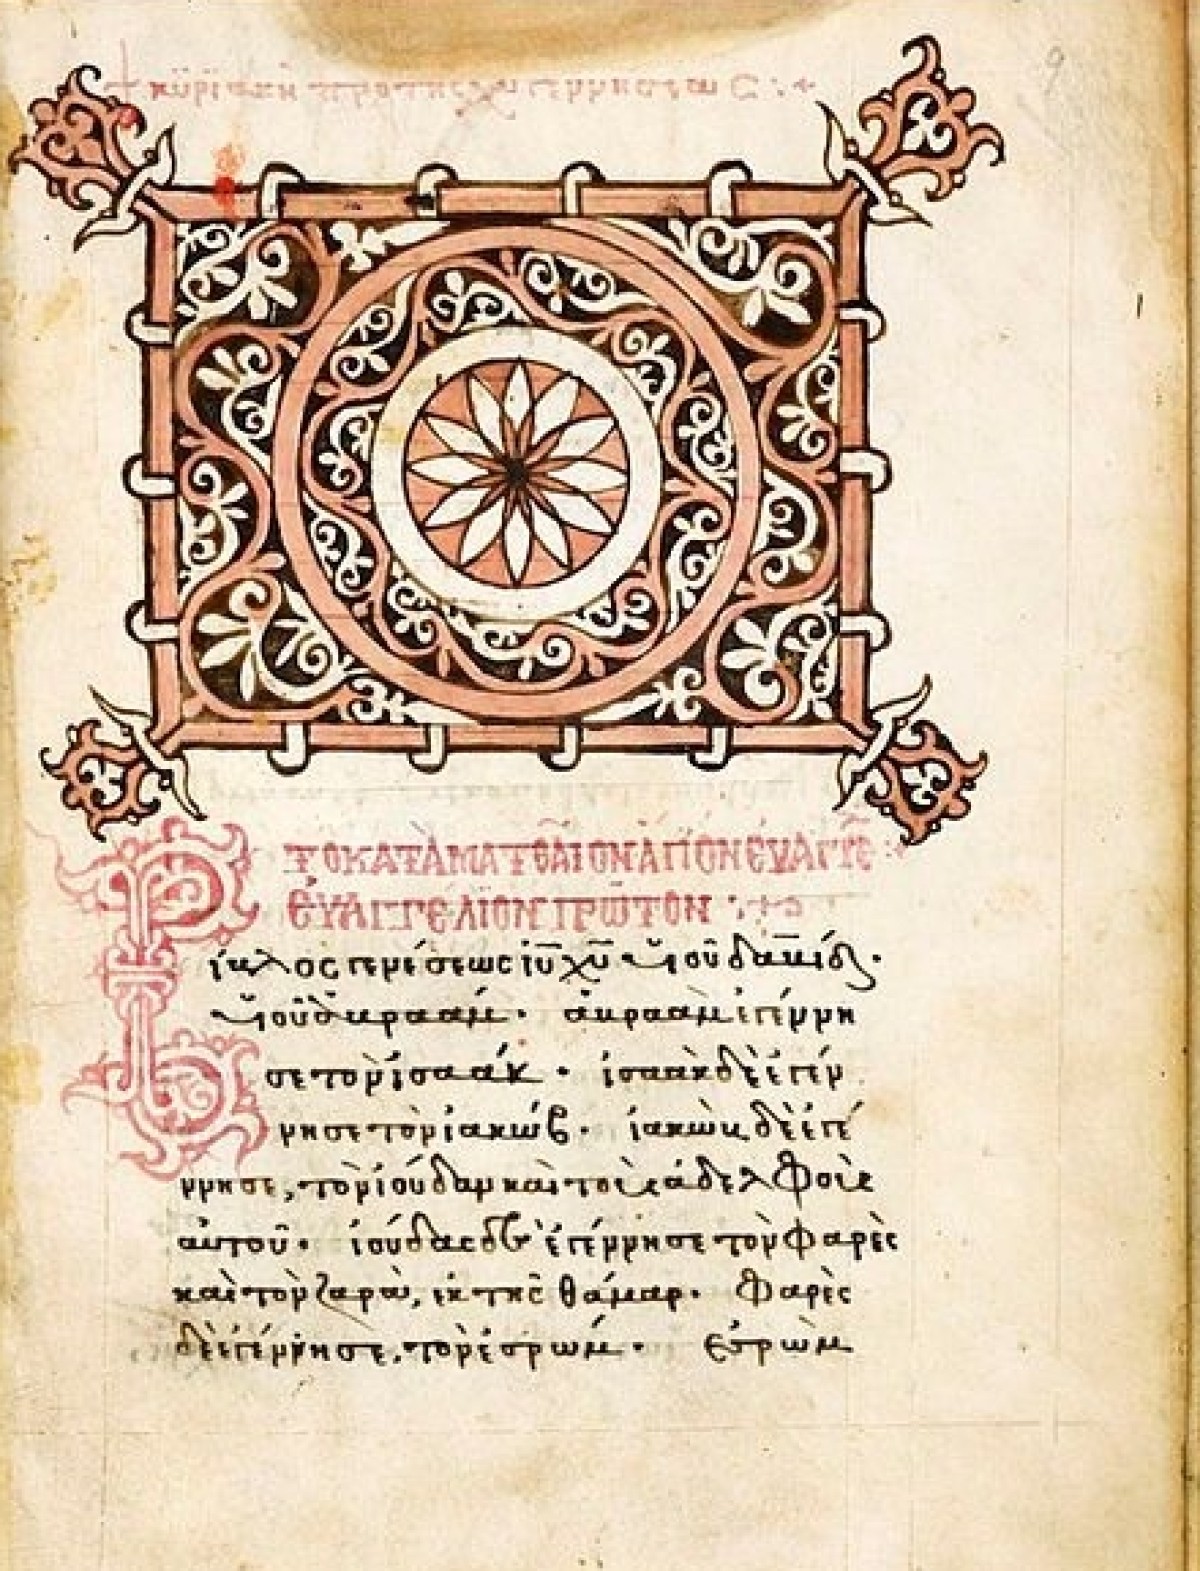 + κυριακῆ πρὸ τῆς χυ γεννήσεως
τὸ κατὰ ματθαῖον ἅγιον εὐαγγε
εὐαγγέλιον πρῶτον
Βίβλος γενέσεως ἰυ χυ υἱοῦ δαυὶδ.
υἱοῦ ἀβραάμ. ἀβραὰμ ἐγέννη
σε τὸν ἰσαάκ. ἰσαὰκ δὲ ἐγέν
νησε τὸν ἰακώβ. ἰακὼβ δὲ ἐγέ
ννησε, τὸν ἰούδαν καὶ τοὺς ἀδελφοὺς
αὐτοῦ. ἰούδας δὲ ἐγέννησε τὸν φαρὲς
καὶ τὸν ζαρὰ, ἐκ τῆς θάμαρ. φαρὲς
δὲ ἐγέννησε, τὸν ἐσρώμ. ἐσρὼμ